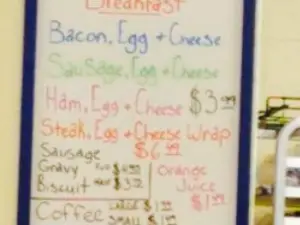 Breakfast
Bacon, Egg + Cheese
Sausage, Egg + Cheese
Ham, Egg + Cheese $3.99
Steak, Egg + Cheese Wrap
$6.99
Sausage
Gravy
Biscuit
Orange
Juice
$1.99
Coffee LARGE $1
SMALL $1